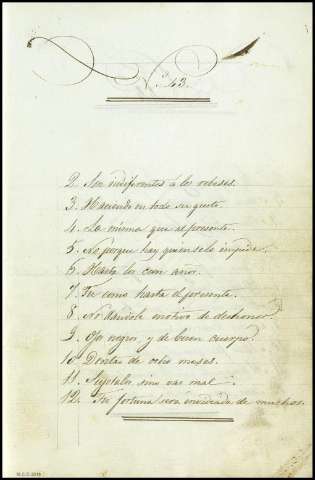 N.° 43.
2. Son indiferentes á los reveses.
3. Haciendo en todo su gusto.
4. Lo mismo que al presente.
5. No porque hay quien se lo impida.
6. Hasta los cien años.
7. Tu como hasta el presente.
8. No dandole motivo de deshonor.
9. Ojos negros, y de buen cuerpo.
10. Dentro de ocho meses.
11. Sigelas sino vas mal.
12. Tu fortuna sera envidiada de muchos.